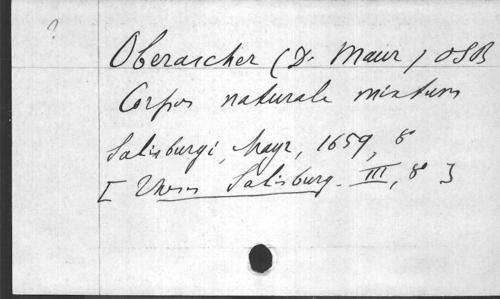 ?
Oberascher (D. Maur) OSB
Corpus naturale mixtum
Salisburgi, Mayr, 1659, 8°
[Theses Salisburg. III, 8°]